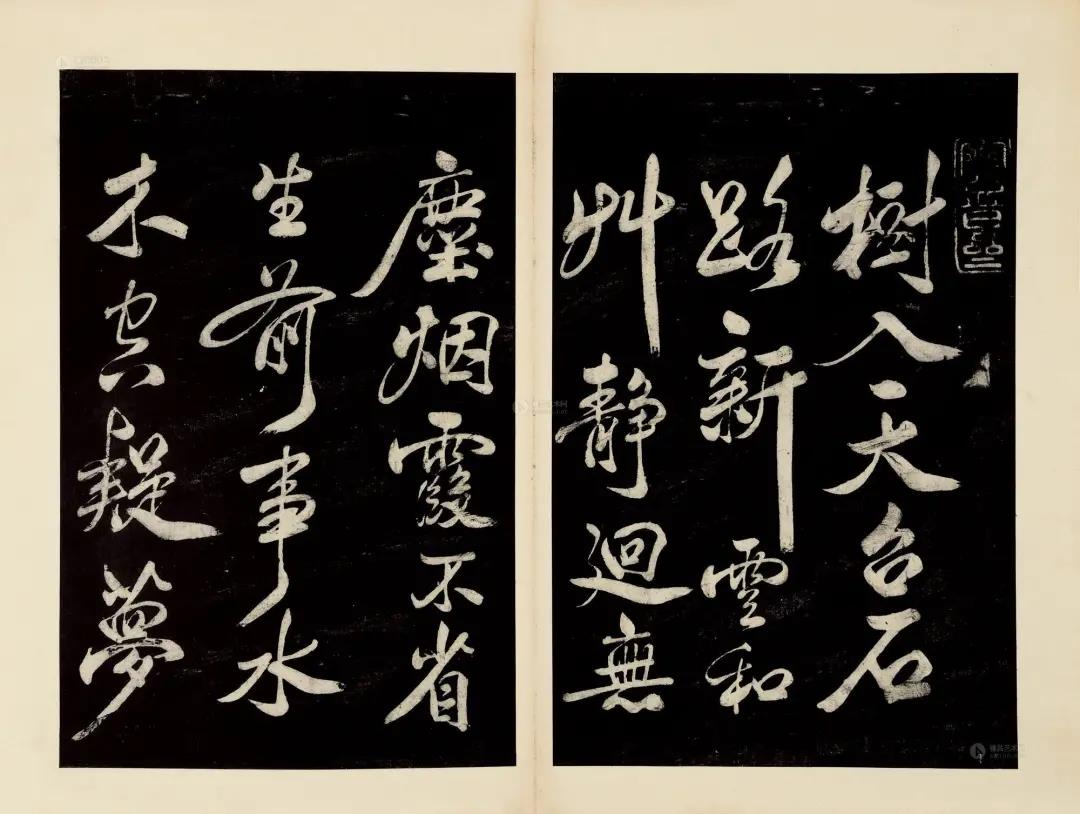 樹入天台石
路新雲和
艸靜迴無
塵烟霞不省
生前事水
木空疑夢